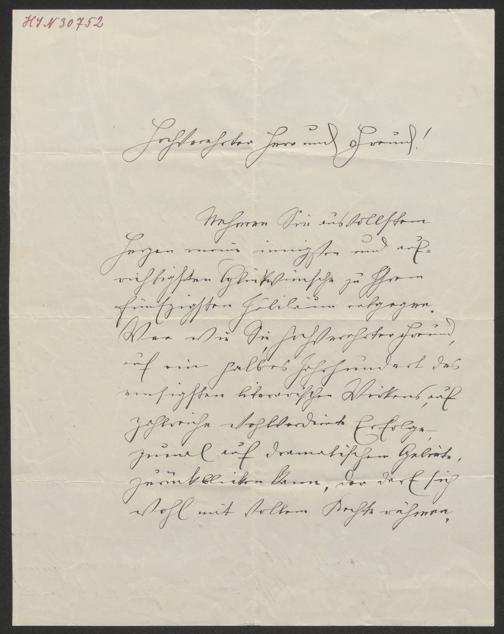 H.I.N. 30752
Hochverehrter Herr und Freund!
Nehmen Sie aus vollstem
Herzen meine innigsten und auf-
richtigsten Glückwünsche zu Ihrem
fünfzigsten Jubiläum entgegen.
Wer wie Sie, hochverehrter Freund,
auf ein halbes Jahrhundert des
emsigsten literarischen Wirkens, auf
zahlreiche wohlverdiente Erfolge,
zumal auf dramatischem Gebiete,
zurückblicken kann, der darf sich
wohl mit vollem Rechte rühmen,